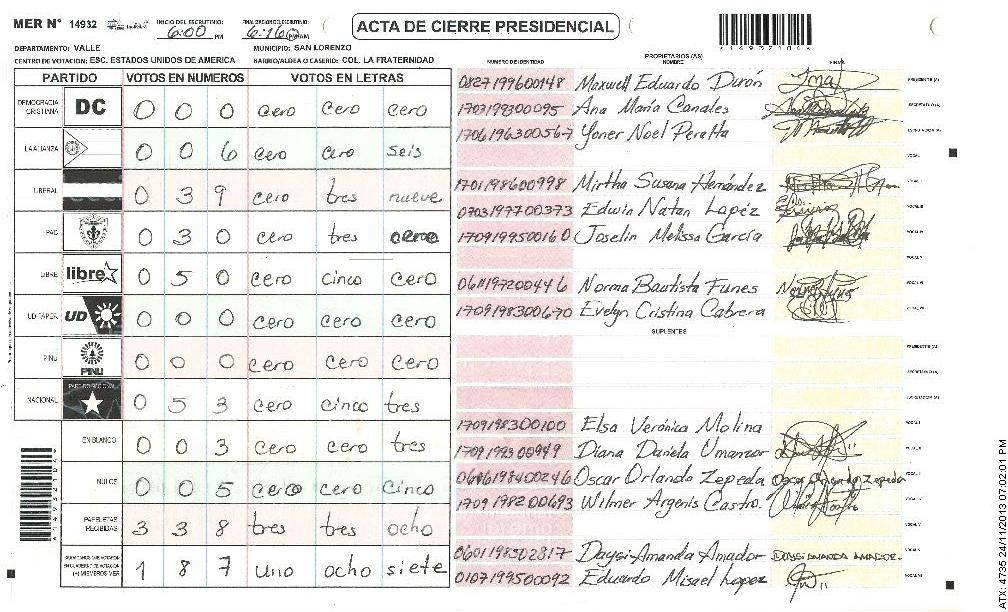 MER N° 14932
INICIO DEL ESCRUTINIO: 6:00 PM
FINALIZACION ESCRUTINIO: 6:16 PM/AM
ACTA DE CIERRE PRESIDENCIAL
DEPARTAMENTO: VALLE MUNICIPIO: SAN LORENZO
CENTRO DE VOTACION: ESC. ESTADOS UNIDOS DE AMERICA BARRIO/ALDEA O CASERIO: COL. LA FRATERNIDAD
PARTIDO VOTOS EN NUMEROS VOTOS EN LETRAS
DEMOCRACIA CRISTIANA DC 0 0 0 cero cero cero
LA ALIANZA 0 0 6 cero cero seis
LIBERAL 0 3 9 cero tres nueve
PAC 0 3 0 cero tres cero
LIBRE libre 0 5 0 cero cinco cero
UD-FAPER UD 0 0 0 cero cero cero
PINU PINU 0 0 0 cero cero cero
NACIONAL 0 5 3 cero cinco tres
EN BLANCO 0 0 3 cero cero tres
NULOS 0 0 5 cero cero cinco
PAPELETAS RECIBIDAS 3 3 8 tres tres ocho
CIUDADANOS QUE VOTARON EN CUADERNO DE VOTACION (+) MIEMBROS MER 1 8 7 uno ocho siete
PROPIETARIOS (AS)
NUMERO DE IDENTIDAD NOMBRE FIRMA
0827199600148 Maxwell Eduardo Durón PRESIDENTE (A)
1703199300095 Ana María Canales SECRETARIO (A)
1706196300567 Yoner Noel Peralta ESCRUTADOR (A)
VOCAL I
1701198600998 Mirtha Susana Hernández
0703197700373 Edwin Natan Lopéz
1709199500160 Joselin Melissa García
0611197200446 Norma Bautista Funes
1709198300670 Evelyn Cristina Cabrera
SUPLENTES
PRESIDENTE (A)
SECRETARIO (A)
ESCRUTADOR (A)
1709198300100 Elsa Verónica Molina
1709199300949 Diana Daniela Umanzor
0606198400246 Oscar Orlando Zepeda Oscar Orlando Zepeda
1709198200693 Wilmer Argenis Castro.
0601198502817 Daysi Amanda Amador DAYSI AMANDA AMADOR.
0107199500092 Eduardo Misael Lopez
ATX: 4735 24/11/2013 07:02:01 PM